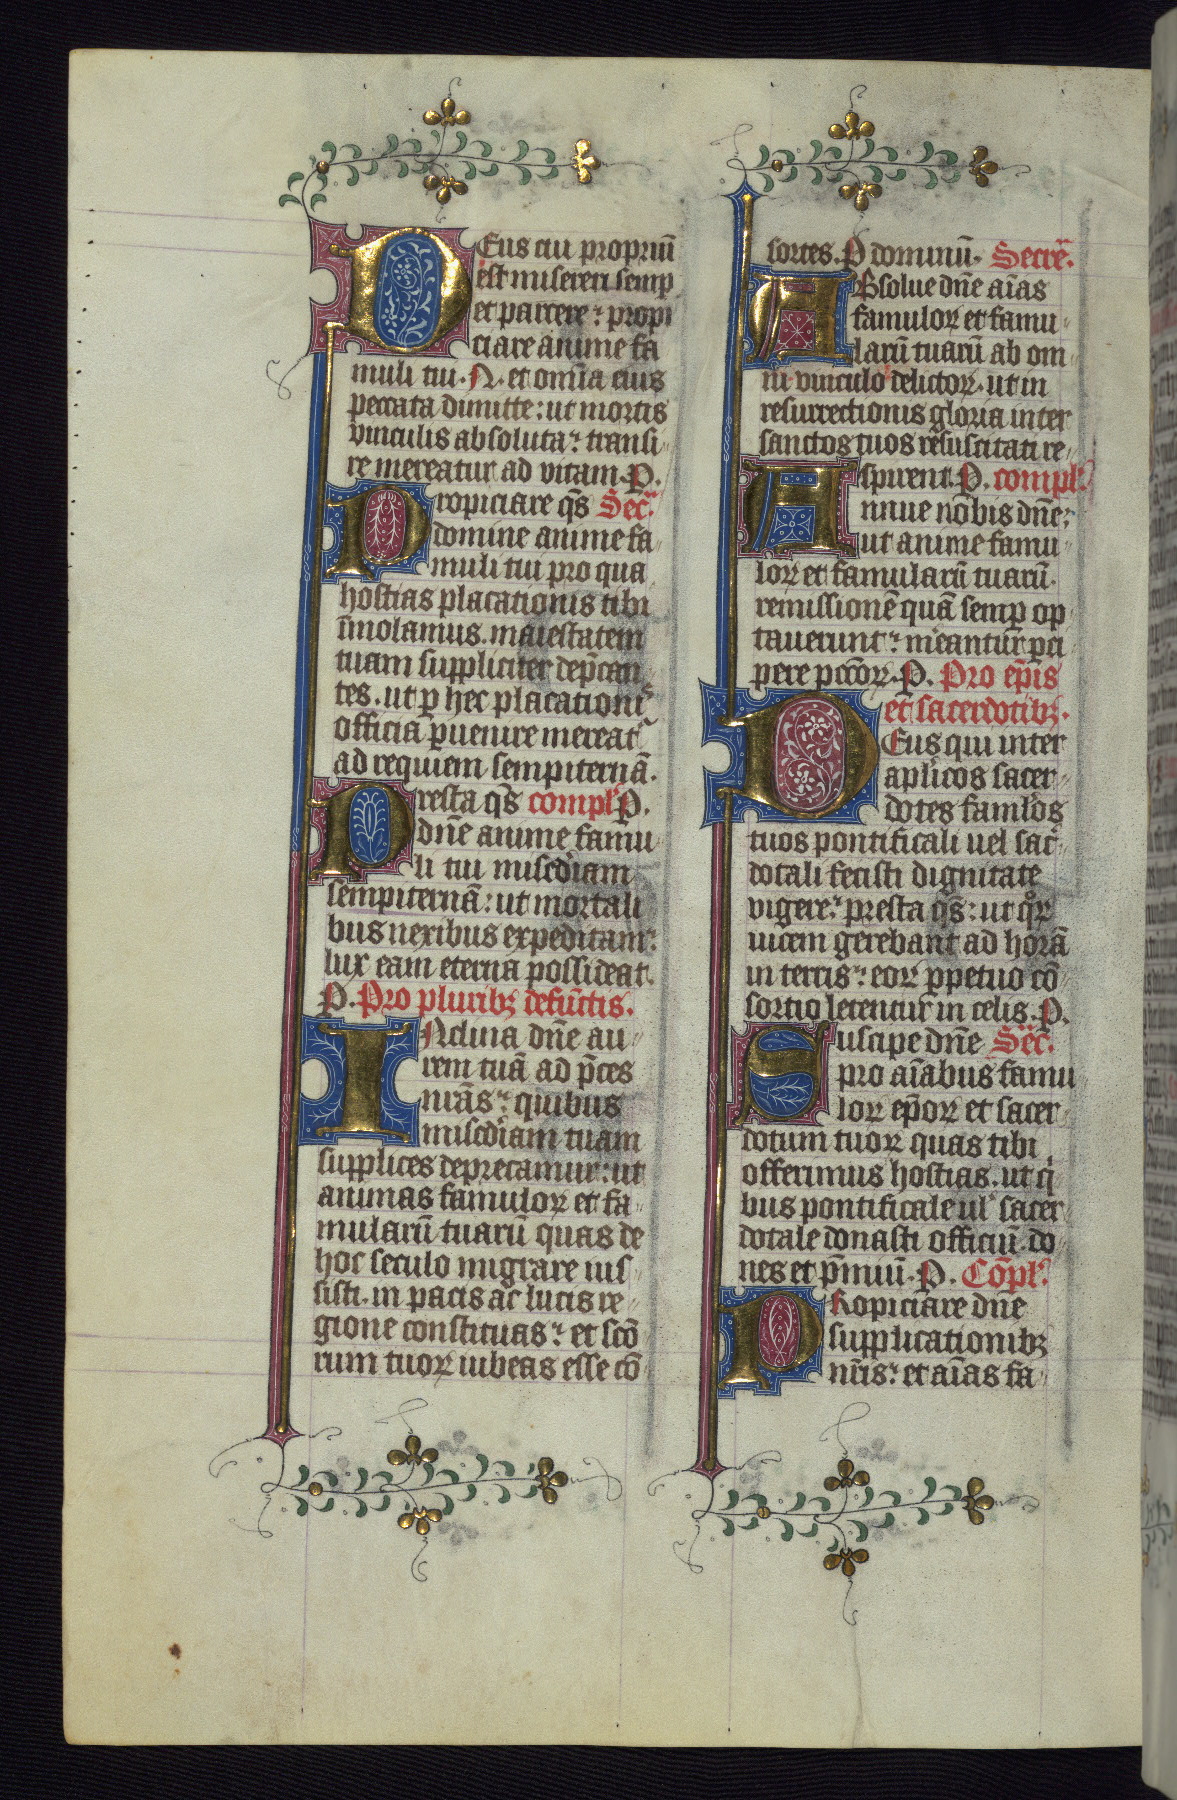 DEus cui propriū
est misereri semp̱
et parcere: propi
ciare anime fa
muli tui. N. et om̄ia eius
peccata dimitte: ut mortis
vinculis absoluta: transi-
re mereatur ad vitam. P.
Propiciare q̄s Sec̄.
domine anime fa-
muli tui pro qua
hostias placationis tibi
īmolamus. maiestatem
tuam suppliciter dep̄can-
tes. ut ꝑ hec placationis
officia ꝑuenire mereat᷑
ad requiem sempiternā.
Presta q̄s compl̄. P.
dn̄e anime famu-
li tui misc̄diam
sempiternā: ut mortali
bus nexibus expeditam:
lux eam eterna possideat.
P. Pro pluribꝫ defūctis.
INclina dn̄e au-
rem tuā ad p̄ces
nr̄as: quibus
misc̄diam tuam
supplices deprecamur: ut
animas famuloꝝ et fa-
mularū tuarū quas de
hoc seculo migrare ius-
sisti. in pacis ac lucis re-
gione constituas: et scō
rum tuoꝝ iubeas esse cō
sortes. P dominū. Secre᷑.
ABsolue dn̄e aīas
famuloꝝ et famu-
larū tuarū ab om-
ni vinculo delictoꝝ. ut in
resurrectionis gloria inter
sanctos tuos resuscitati re-
spirent. P. compl̄.
Annue nobis dn̄e:
ut anime famu-
loꝝ et famularū tuarū.
remissionē quā semꝑ op
tauerunt: m̄eantur ꝑci
pere pccōꝝ. P. Pro ep̄is
et sacerdotibꝫ.
DEus qui inter
aplicos sacer-
dotes famlos
tuos pontificali uel sac̄-
dotali fecisti dignitate
vigere: presta q̄s: ut qͦꝝ
uicem gerebant ad horā
in terris: eoꝝ ꝑpetuo cō
sortio letentur in celis. P.
Suscipe dn̄e Sec̄.
pro aīabus famu
loꝝ ep̄oꝝ et sacer-
dotum tuoꝝ quas tibi
offerimus hostias. ut q̄
bus pontificale ul̄ sacer-
dotale donasti officiū. do-
nes et p̄miū. P. Cōpl̄.
PRopiciare dn̄e
supplicationibꝫ
nr̄is: et aīas fa-